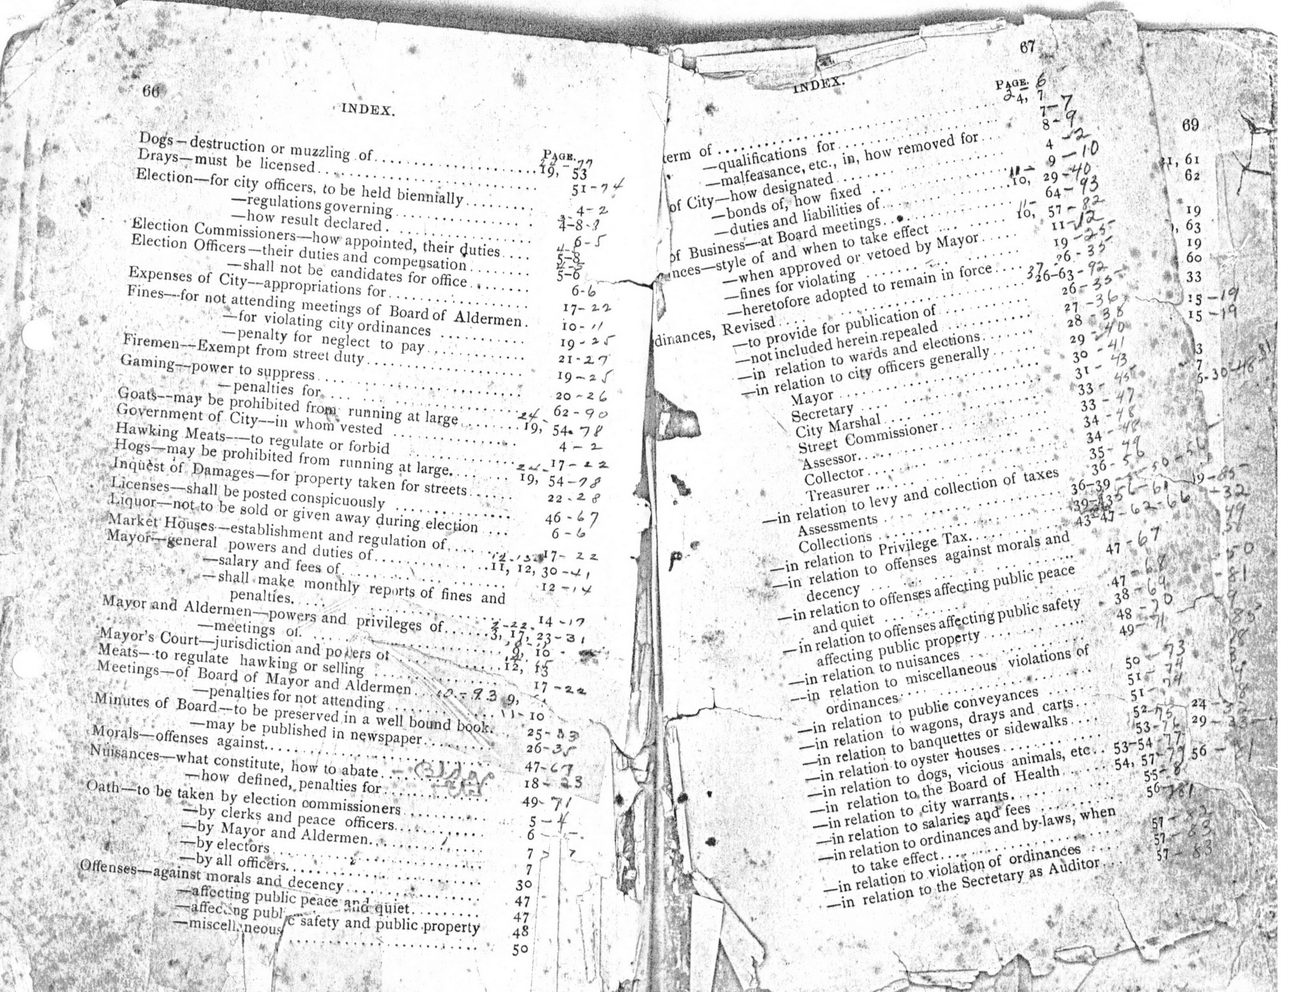 66
INDEX.
PAGE.
Dogs—destruction or muzzling of 19, 53
Drays—must be licensed 51-74
Election—for city officers, to be held biennially 4-2
—regulations governing 4-8-3
—how result declared 6-5
Election Commissioners—how appointed, their duties 5-8
Election Officers—their duties and compensation 5-6
—shall not be candidates for office 6-6
Expenses of City—appropriations for 17-22
Fines—for not attending meetings of Board of Aldermen. 10-11
—for violating city ordinances 19-25
—penalty for neglect to pay 21-27
Firemen—Exempt from street duty 19-25
Gaming—power to suppress 20-26
—penalties for 62-90
Goats—may be prohibited from running at large 24 19, 54-78
Government of City—in whom vested 4-2
Hawking Meats—to regulate or forbid 17-22
Hogs—may be prohibited from running at large. 19, 54-78
Inquest of Damages—for property taken for streets 22-28
Licenses—shall be posted conspicuously 46-67
Liquor—not to be sold or given away during election 6-6
Market Houses—establishment and regulation of 17-22
Mayor—general powers and duties of 11, 12, 30-41
—salary and fees of 12-14
—shall make monthly reports of fines and
penalties. 14-17
Mayor and Aldermen—powers and privileges of 3, 17, 23-31
—meetings of. 9, 10
Mayor's Court—jurisdiction and powers of 12, 15
Meats—to regulate hawking or selling 17-22
Meetings—of Board of Mayor and Aldermen 9,
—penalties for not attending 11-10
Minutes of Board—to be preserved in a well bound book. 25-33
—may be published in newspaper 26-35
Morals—offenses against 47-67
Nuisances—what constitute, how to abate 18-23
—how defined, penalties for 49-71
Oath—to be taken by election commissioners 5-4
—by clerks and peace officers 6
—by Mayor and Aldermen 7
—by electors 7
—by all officers. 30
Offenses—against morals and decency 47
—affecting public peace and quiet 47
—affecting public safety and public property 48
—miscellaneous 50
67
INDEX.
PAGE.
term of 4, 7
—qualifications for 7-7
—malfeasance, etc., in, how removed for 8-9
of City—how designated 4
—bonds of, how fixed 9-10
—duties and liabilities of 10, 29-40
of Business—at Board meetings 64-93
nces—style of and when to take effect 10, 57-82
—when approved or vetoed by Mayor 11-12
—fines for violating 19-25
—heretofore adopted to remain in force 26-35
dinances, Revised 26-63-92
—to provide for publication of 26-35
—not included herein repealed 27-36
—in relation to wards and elections 28-38
—in relation to city officers generally 29-40
Mayor 30-41
Secretary 31-43
City Marshal 33-45
Street Commissioner 33-47
Assessor 34-48
Collector 34-48
Treasurer 35-49
—in relation to levy and collection of taxes 36-56
Assessments 36-39
Collections
—in relation to Privilege Tax 43-47-62-66
—in relation to offenses against morals and
decency 47-67
—in relation to offenses affecting public peace
and quiet 47-68
—in relation to offenses affecting public safety 38-69
affecting public property 48-70
—in relation to nuisances 49-71
—in relation to miscellaneous violations of
ordinances 50-73
—in relation to public conveyances 51-74
—in relation to wagons, drays and carts 51-74
—in relation to banquettes or sidewalks 52-75
—in relation to oyster houses 53-76
—in relation to dogs, vicious animals, etc 53-54-77
—in relation to the Board of Health 54, 57-79
—in relation to city warrants 55-8
—in relation to salaries and fees 56-81
—in relation to ordinances and by-laws, when
to take effect 57-82
—in relation to violation of ordinances 57-83
—in relation to the Secretary as Auditor 57-83
69
61
62
19
63
19
60
33
15-19
15-19
3
7
24
29
56